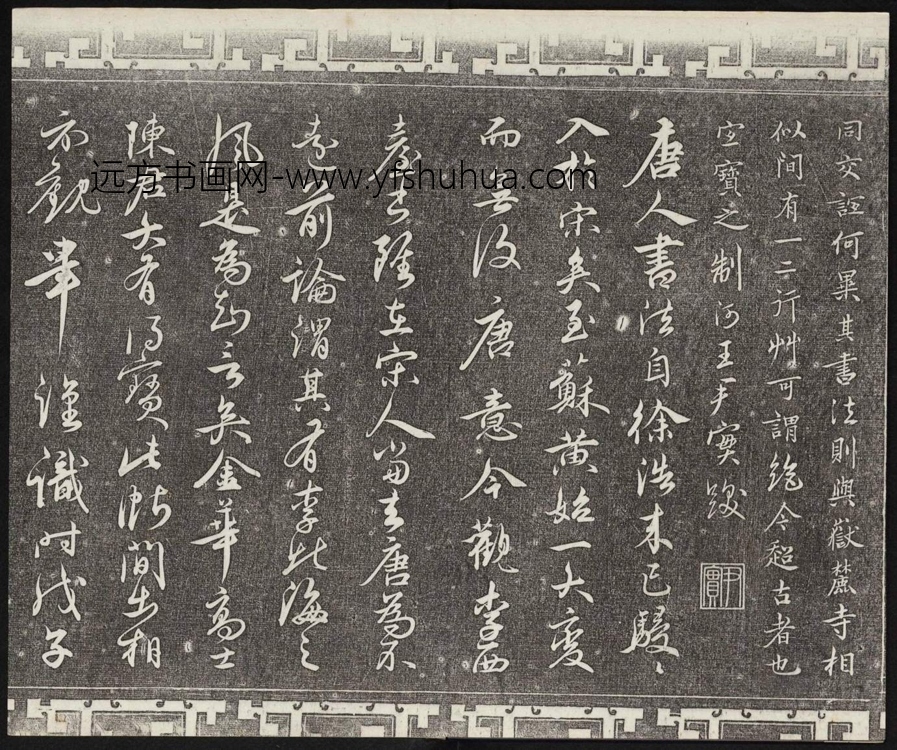 同文詎何異其書法則與嶽麓寺相
似間有一二行艸可謂絶今超古者也
宝寶之制河王尹實跋
尹實
唐人書法自徐浩来已駸〻
入於宋矣至蘇黄始一大變
而無復唐意今觀李西
臺書雖在宋人尚去唐為不
遠前論謂其有李北海之
風是為知言矣金華高士
陳君大有得寶此断簡出相
示觀畢謹識时戊子
远方书画网-www.yfshuhua.com